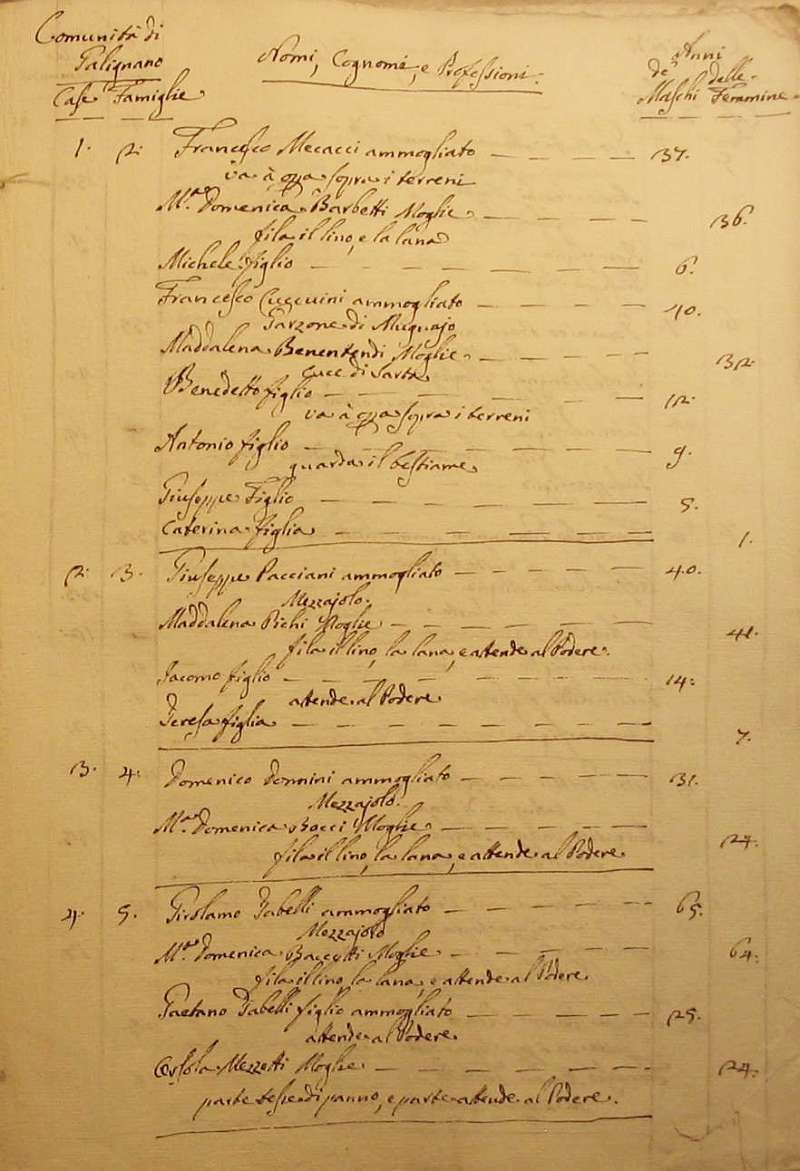 Comunità di
Palignano
Nomi, Cognomi, e Professioni.
Anni
de' delle
Case Famiglie
Maschi Femmine
1. 2. Francesco Mecacci ammogliato 37.
va à opa sopra i terreni
M.a Domenica Barbetti Moglie 36.
fila il lino, e la lana
Michele figlio 6.
Francesco Cuccuini ammogliato 40.
Garzone di Mugnajo
Maddalena Benentendi Moglie 32.
cuce di Sarta
Benedetto figlio 12.
va à opa sopra i terreni
Antonio figlio 9.
guarda il bestiame
Giuseppe Figlio 5.
Caterina figlia 1.
2. 3. Giuseppe Pacciani ammogliato 40.
Mezzajolo.
Maddalena Pichi Moglie 41.
fila il lino, la lana, e attende al Podere.
Iacomo figlio 14.
attende al Podere
Teresa figlia 7.
3. 4. Domenico Donnini ammogliato 31.
Mezzajolo.
M.a Domenica Bocci Moglie 24.
fila il lino, la lana, e attende al Podere
4. 5. Girolamo Tabelli ammogliato 65.
Mezzajolo
M.a Domenica Baccotti Moglie 64.
fila il lino, la lana, e attende al Podere
Gaetano Tabelli figlio ammogliato 25.
attende al Podere
Orsola Mezzetti Moglie 24.
parte tesse di panno, e parte attende al Podere.